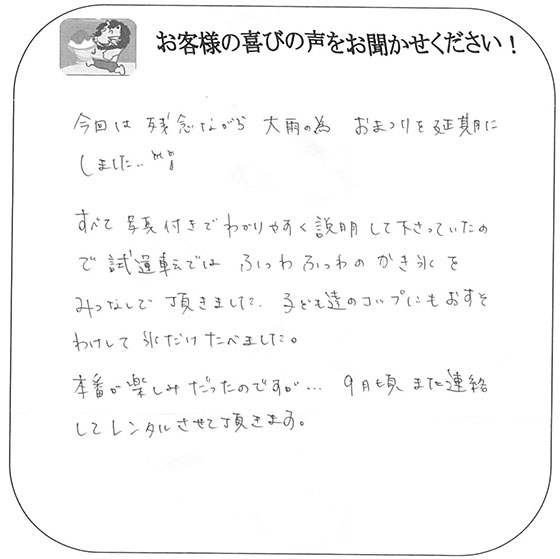 お客様の喜びの声をお聞かせください！
今回は 残念ながら 大雨の為 おまつりを延期に
しました..
すべて 写真付きでわかりやすく説明して下さっていたの
で 試運転では ふわふわのかき氷を
みつなしで 頂きました. 子ども達のコップにもおすそ
わけして 氷だけたべました。
本番が楽しみだったのですが... 9月頃 また連絡
してレンタルさせて頂きます。